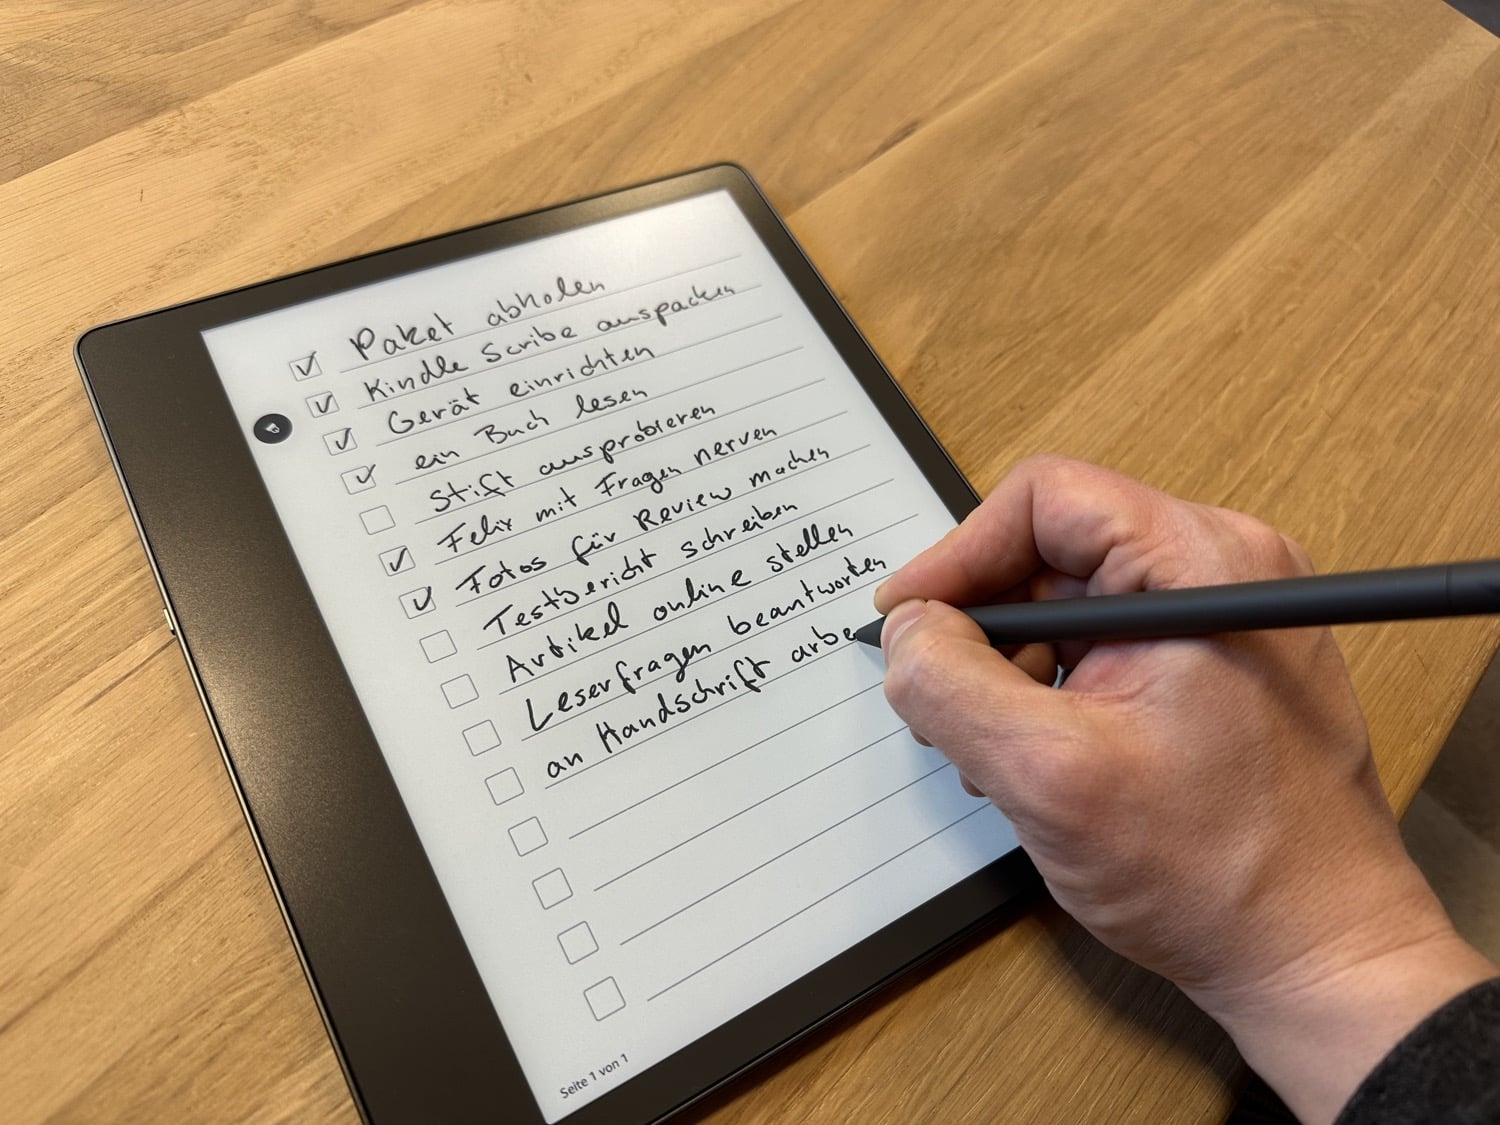 Paket abholen
Kindle Scribe auspacken
Gerät einrichten
ein Buch lesen
Stift ausprobieren
Felix mit Fragen nerven
Fotos für Review machen
Testbericht schreiben
Artikel online stellen
Leserfragen beantworten
an Handschrift arbe
Seite 1 von 1